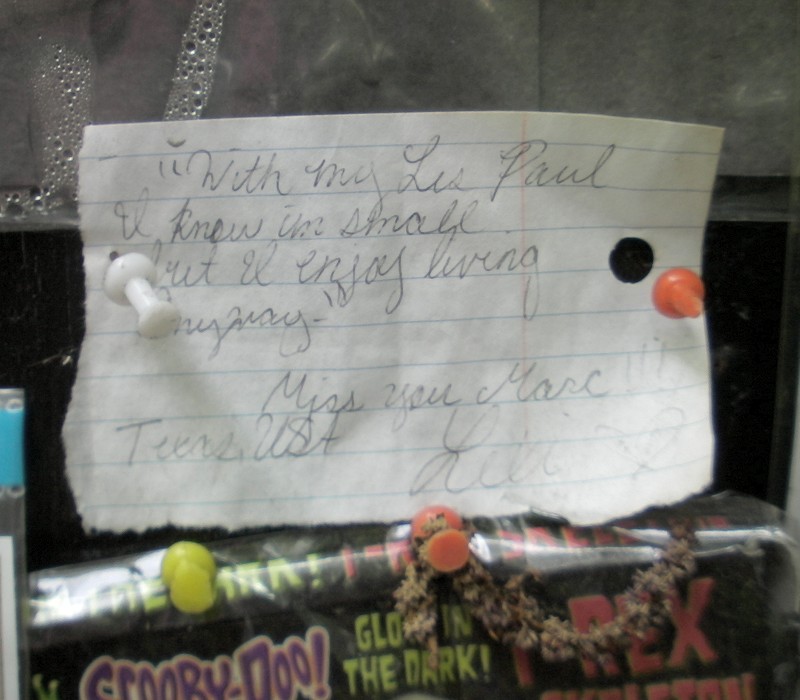 "With my Les Paul
I know im small
but I enjoy living
anyway-"
Miss you Marc !!!
Texas, USA
THE DARK!
SCOOBY-DOO!
GLOW IN
THE DARK!
T-REX
SKELETON!